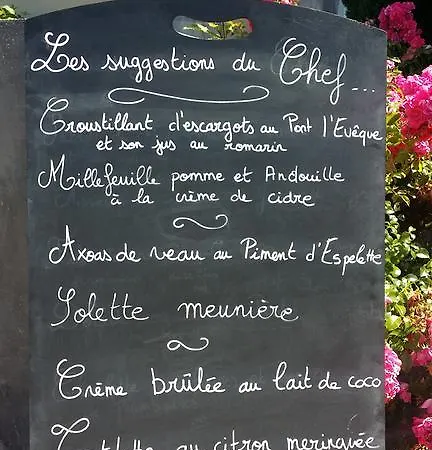 Les suggestions du Chef...
Croustillant d'escargots au Pont l'Evêque
et son jus au romarin
Millefeuille pomme et Andouille
à la crème de cidre
Axoas de veau au Piment d'Espelette
Solette meunière
Crème brûlée au lait de coco
au citron meringuée